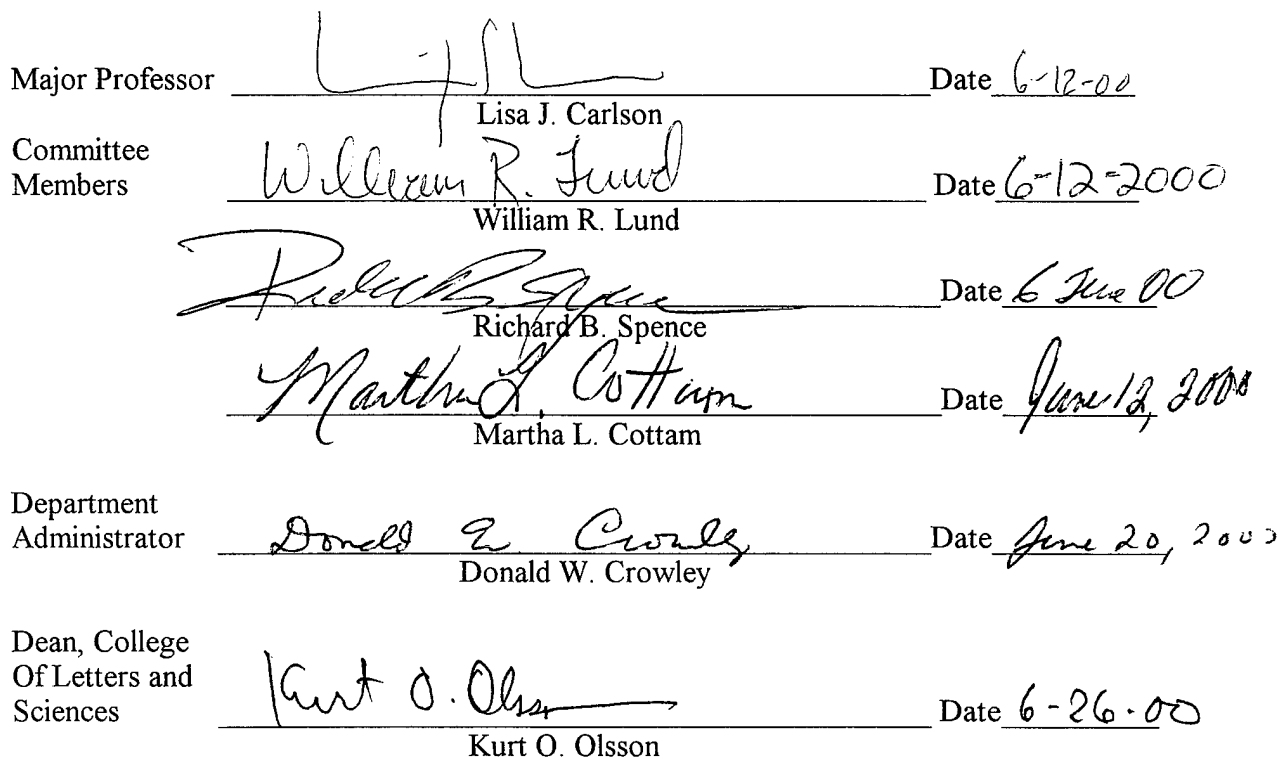 Major Professor Date 6-12-00
Lisa J. Carlson
Committee
Members William R. Lund Date 6-12-2000
William R. Lund
Richard B. Spence Date 6 June 00
Richard B. Spence
Martha L. Cottam Date June 12, 2000
Martha L. Cottam
Department
Administrator Donald W. Crowley Date June 20, 2000
Donald W. Crowley
Dean, College
Of Letters and
Sciences Kurt O. Olsson Date 6-26-00
Kurt O. Olsson